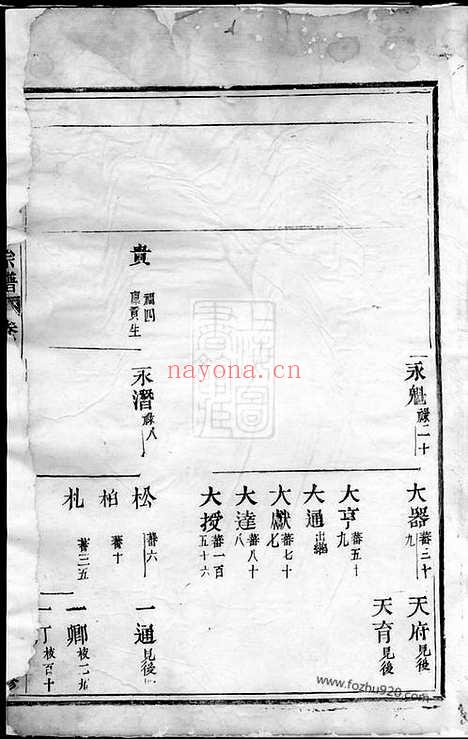 永魁祿二十
大器蕃三十九
天府見後
大亨蕃五十九
天育見後
大通出繼
大獻蕃七十七
大達蕃八十八
大授蕃一百五十六
貴福四廩貢生
永潛祿八
松蕃六
一通見後
柏蕃十
一卿
札蕃三五
一丁
宗譜
nayona.cn
www.fozhu920.com